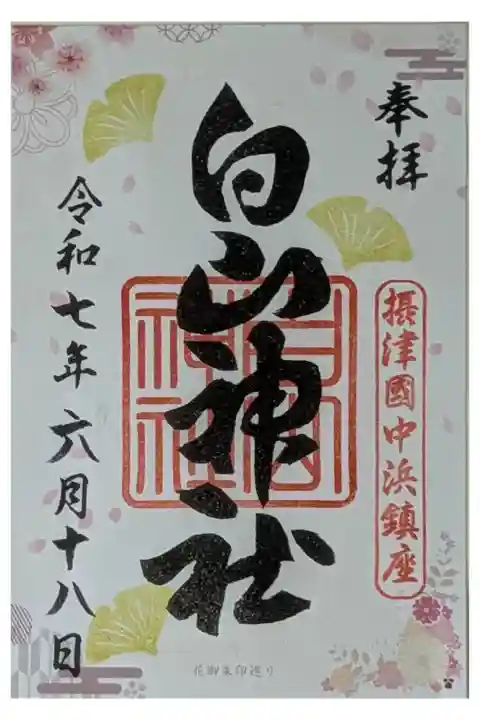 奉拝
摂津國中浜鎮座
白山神社
白山神社
令和七年六月十八日
花御朱印巡り